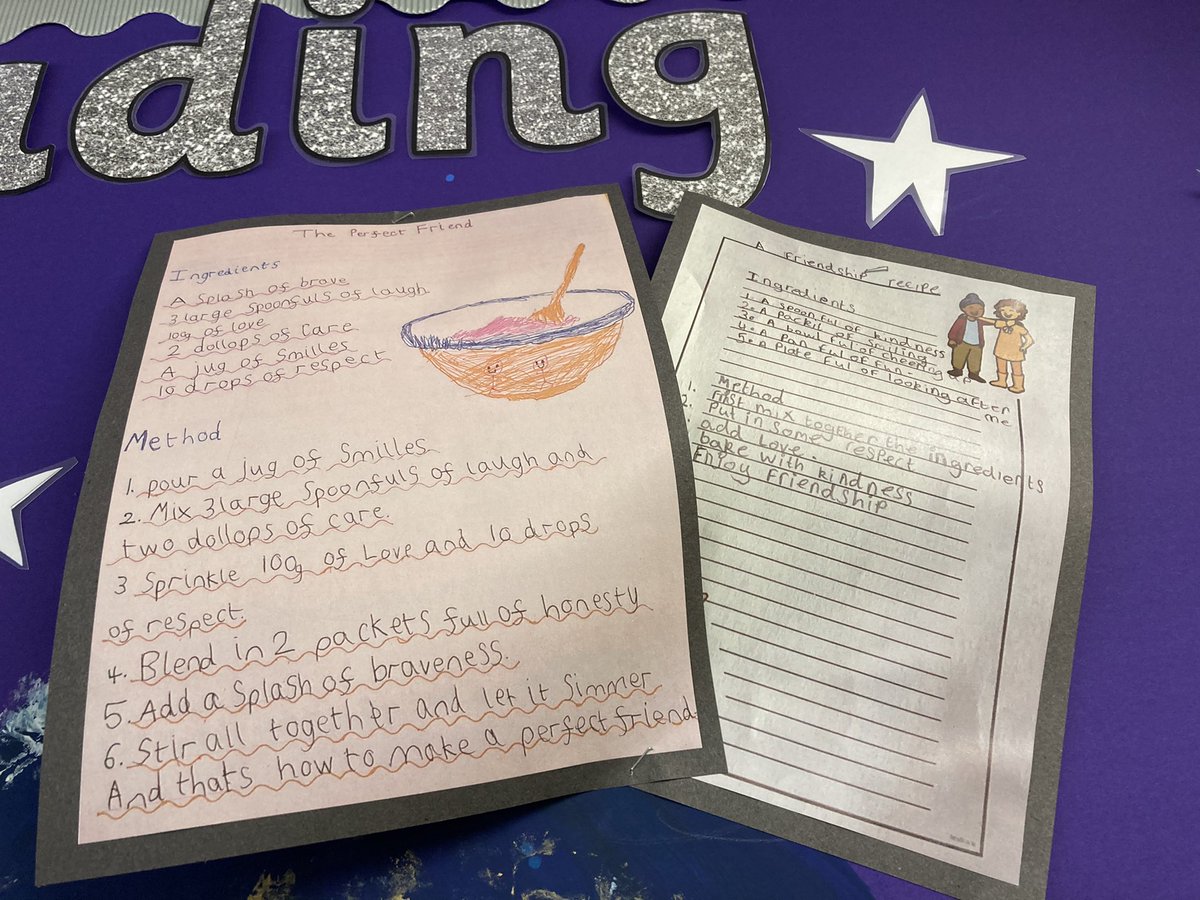 ading
The Perfect Friend
Ingredients
A Splash of brave
3 large Spoonfuls of laugh
100g of love
2 dollops of Care
A jug of Smiles
10 drops of respect
Method
1. pour a jug of Smilles
2. Mix 3 large Spoonfuls of laugh and
two dollops of care.
3 Sprinkle 100g of Love and 10 drops
of respect.
4. Blend in 2 packets full of honesty
5. Add a Splash of braveness.
6. Stir all together and let it Simmer
And thats how to make a perfect friend.
A friendship recipe
Ingredients
1. A spoonful of kindness
2. A Packit of smiling
3. A bowl ful of cheering up
4. A Pan ful of fun.
5. A Plate ful of looking after
me
Method
1. First mix together the ingredients
2. Put in some respect
add Love.
bake with kindness
Enjoy Friendship